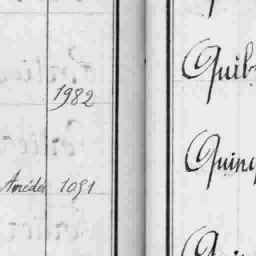 1982
Amédée 1051
Quib
Quinq